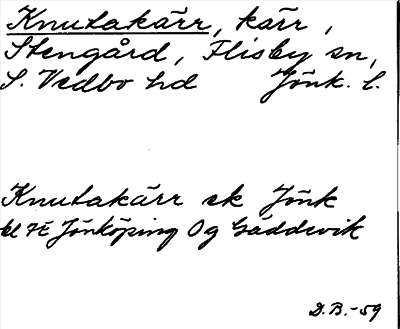 Knutakärr, kärr,
Stengård, Flisby sn,
S. Vedbo hd Jönk. l.
Knutakärr ek Jönk
bl 7E Jönköping Og Gäddevik
D.B.-59